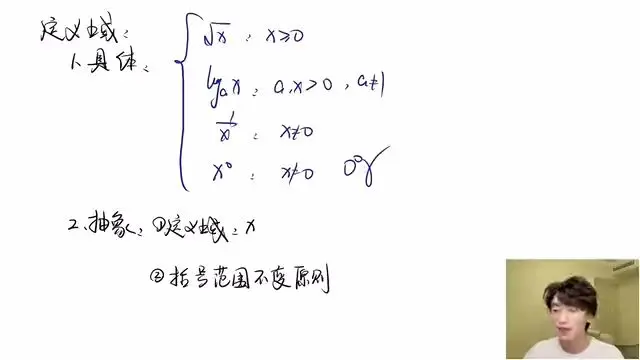 定义域:
1.具体:
√x : x≥0
logₐx : a,x>0, a≠1
1/x : x≠0
x⁰ : x≠0 0⁰
2.抽象: ①定义域: x
②括号范围不变原则